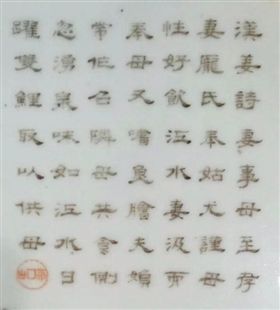 漢姜詩妻事母至孝
妻龐氏奉姑尤謹母
性好飲江水妻汲而
奉母又嗜魚膾夫婦
常作召隣母共食側
忽湧泉味如江水日
躍雙鯉取以供母